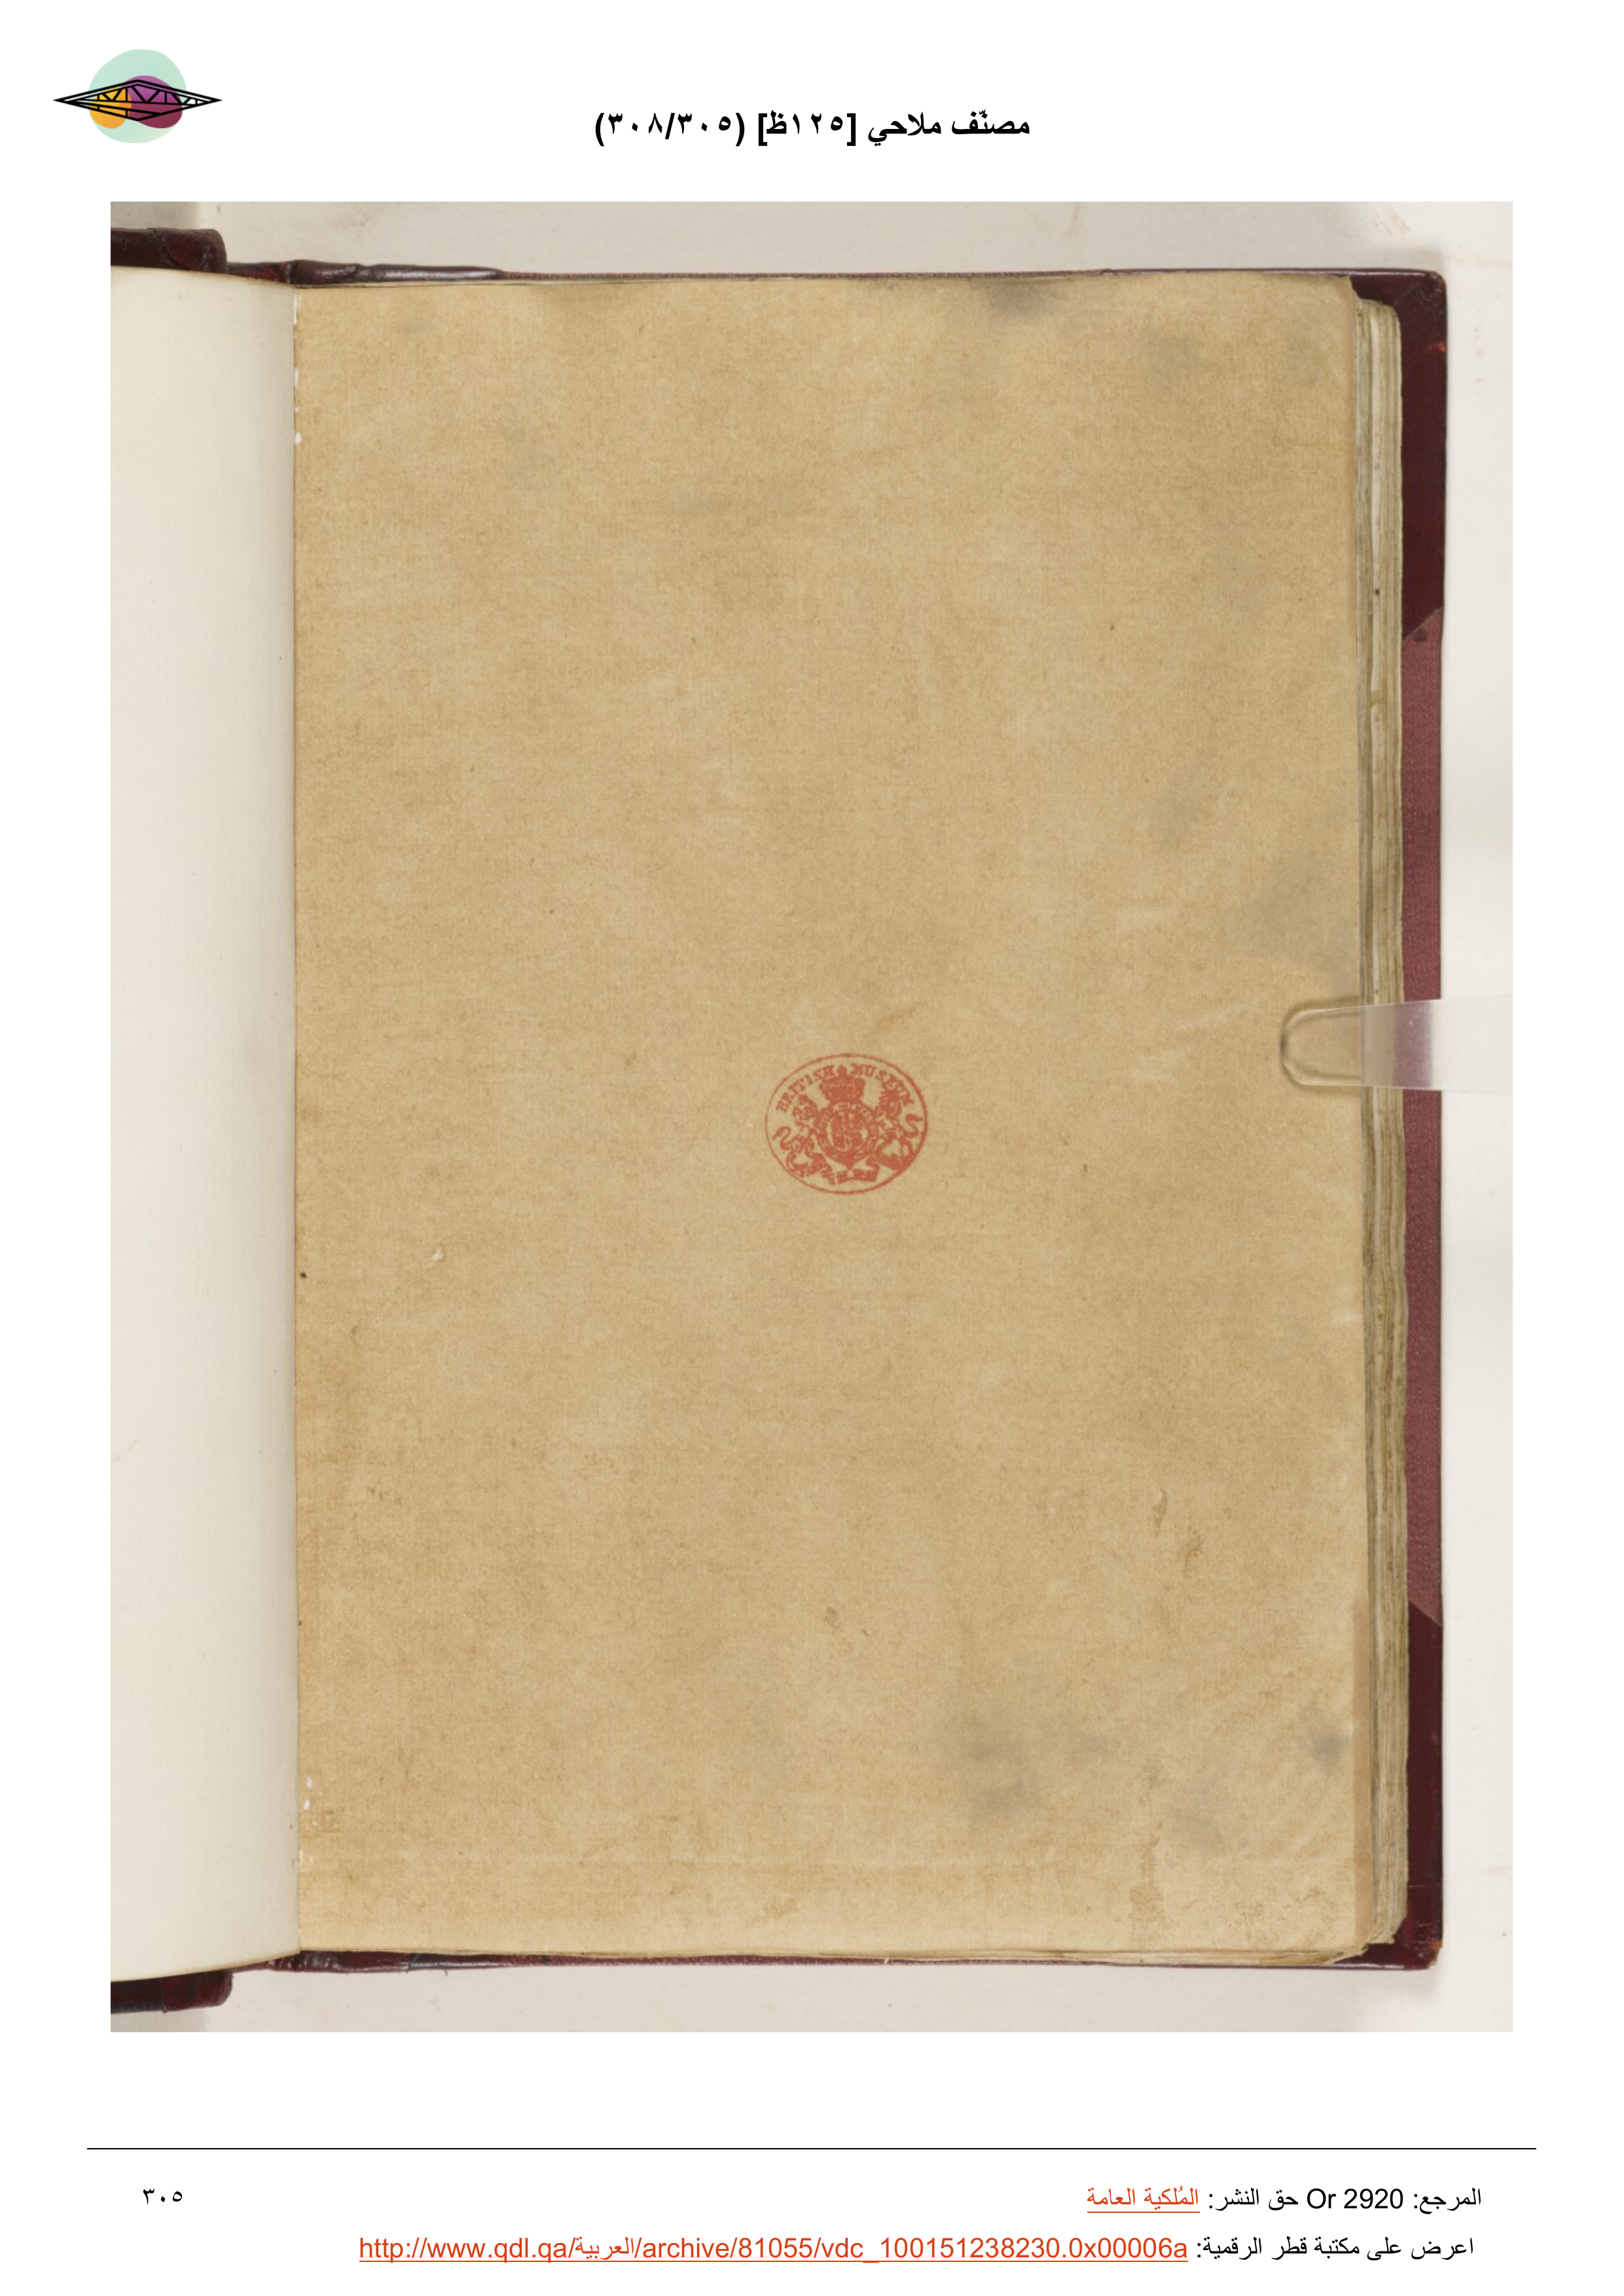 مصنّف ملاحي [١٢٥ظ] (٣٠٨/٣٠٥)
BRITISH MUSEUM
المرجع: Or 2920 حق النشر: المُلكية العامة
٣٠٥
اعرض على مكتبة قطر الرقمية: http://www.qdl.qa/العربية/archive/81055/vdc_100151238230.0x00006a